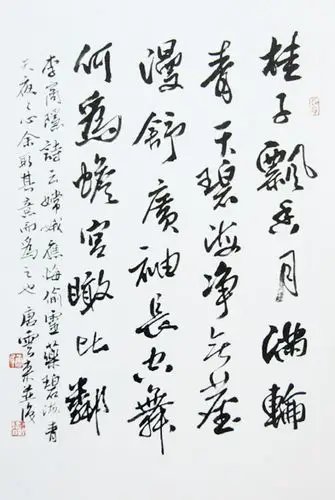 桂子飄香月滿輪
青天碧海净無塵
漫舒廣袖長空舞
何爲蟾宮瞰比鄰
李商隱詩云嫦娥應悔偷靈藥碧海青
天夜々心余取其意而爲之也唐雲来